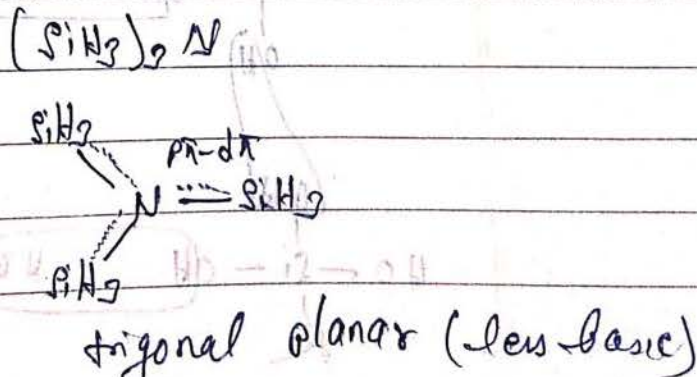 (SiH3)3 N
SiH3
pπ-dπ
N SiH3
SiH3
trigonal planar (less basic)